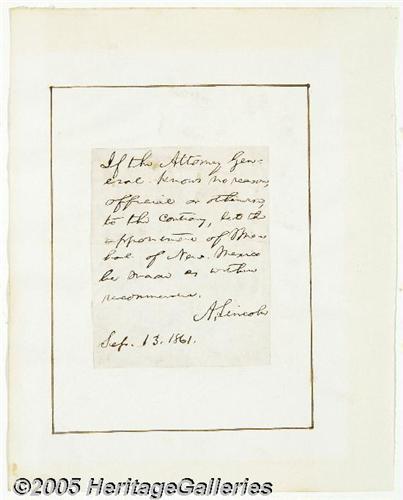 If the Attorney Gen-
eral knows no reason,
official or otherwise,
to the contrary, let the
appointment of Mar-
shal of New-Mexico
be made as within
recommended.
A. Lincoln
Sep. 13. 1861.
©2005 HeritageGalleries